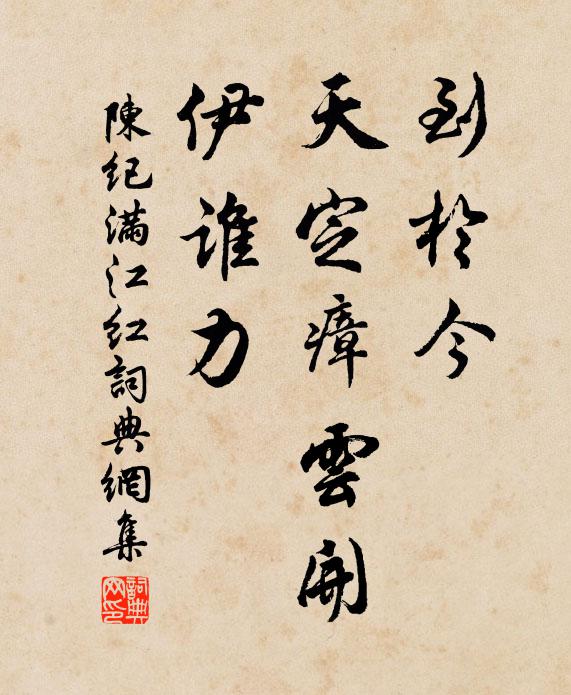 到於今
天定瘴雲開
伊誰力
陳紀滿江紅詞典網集
詞典
网印